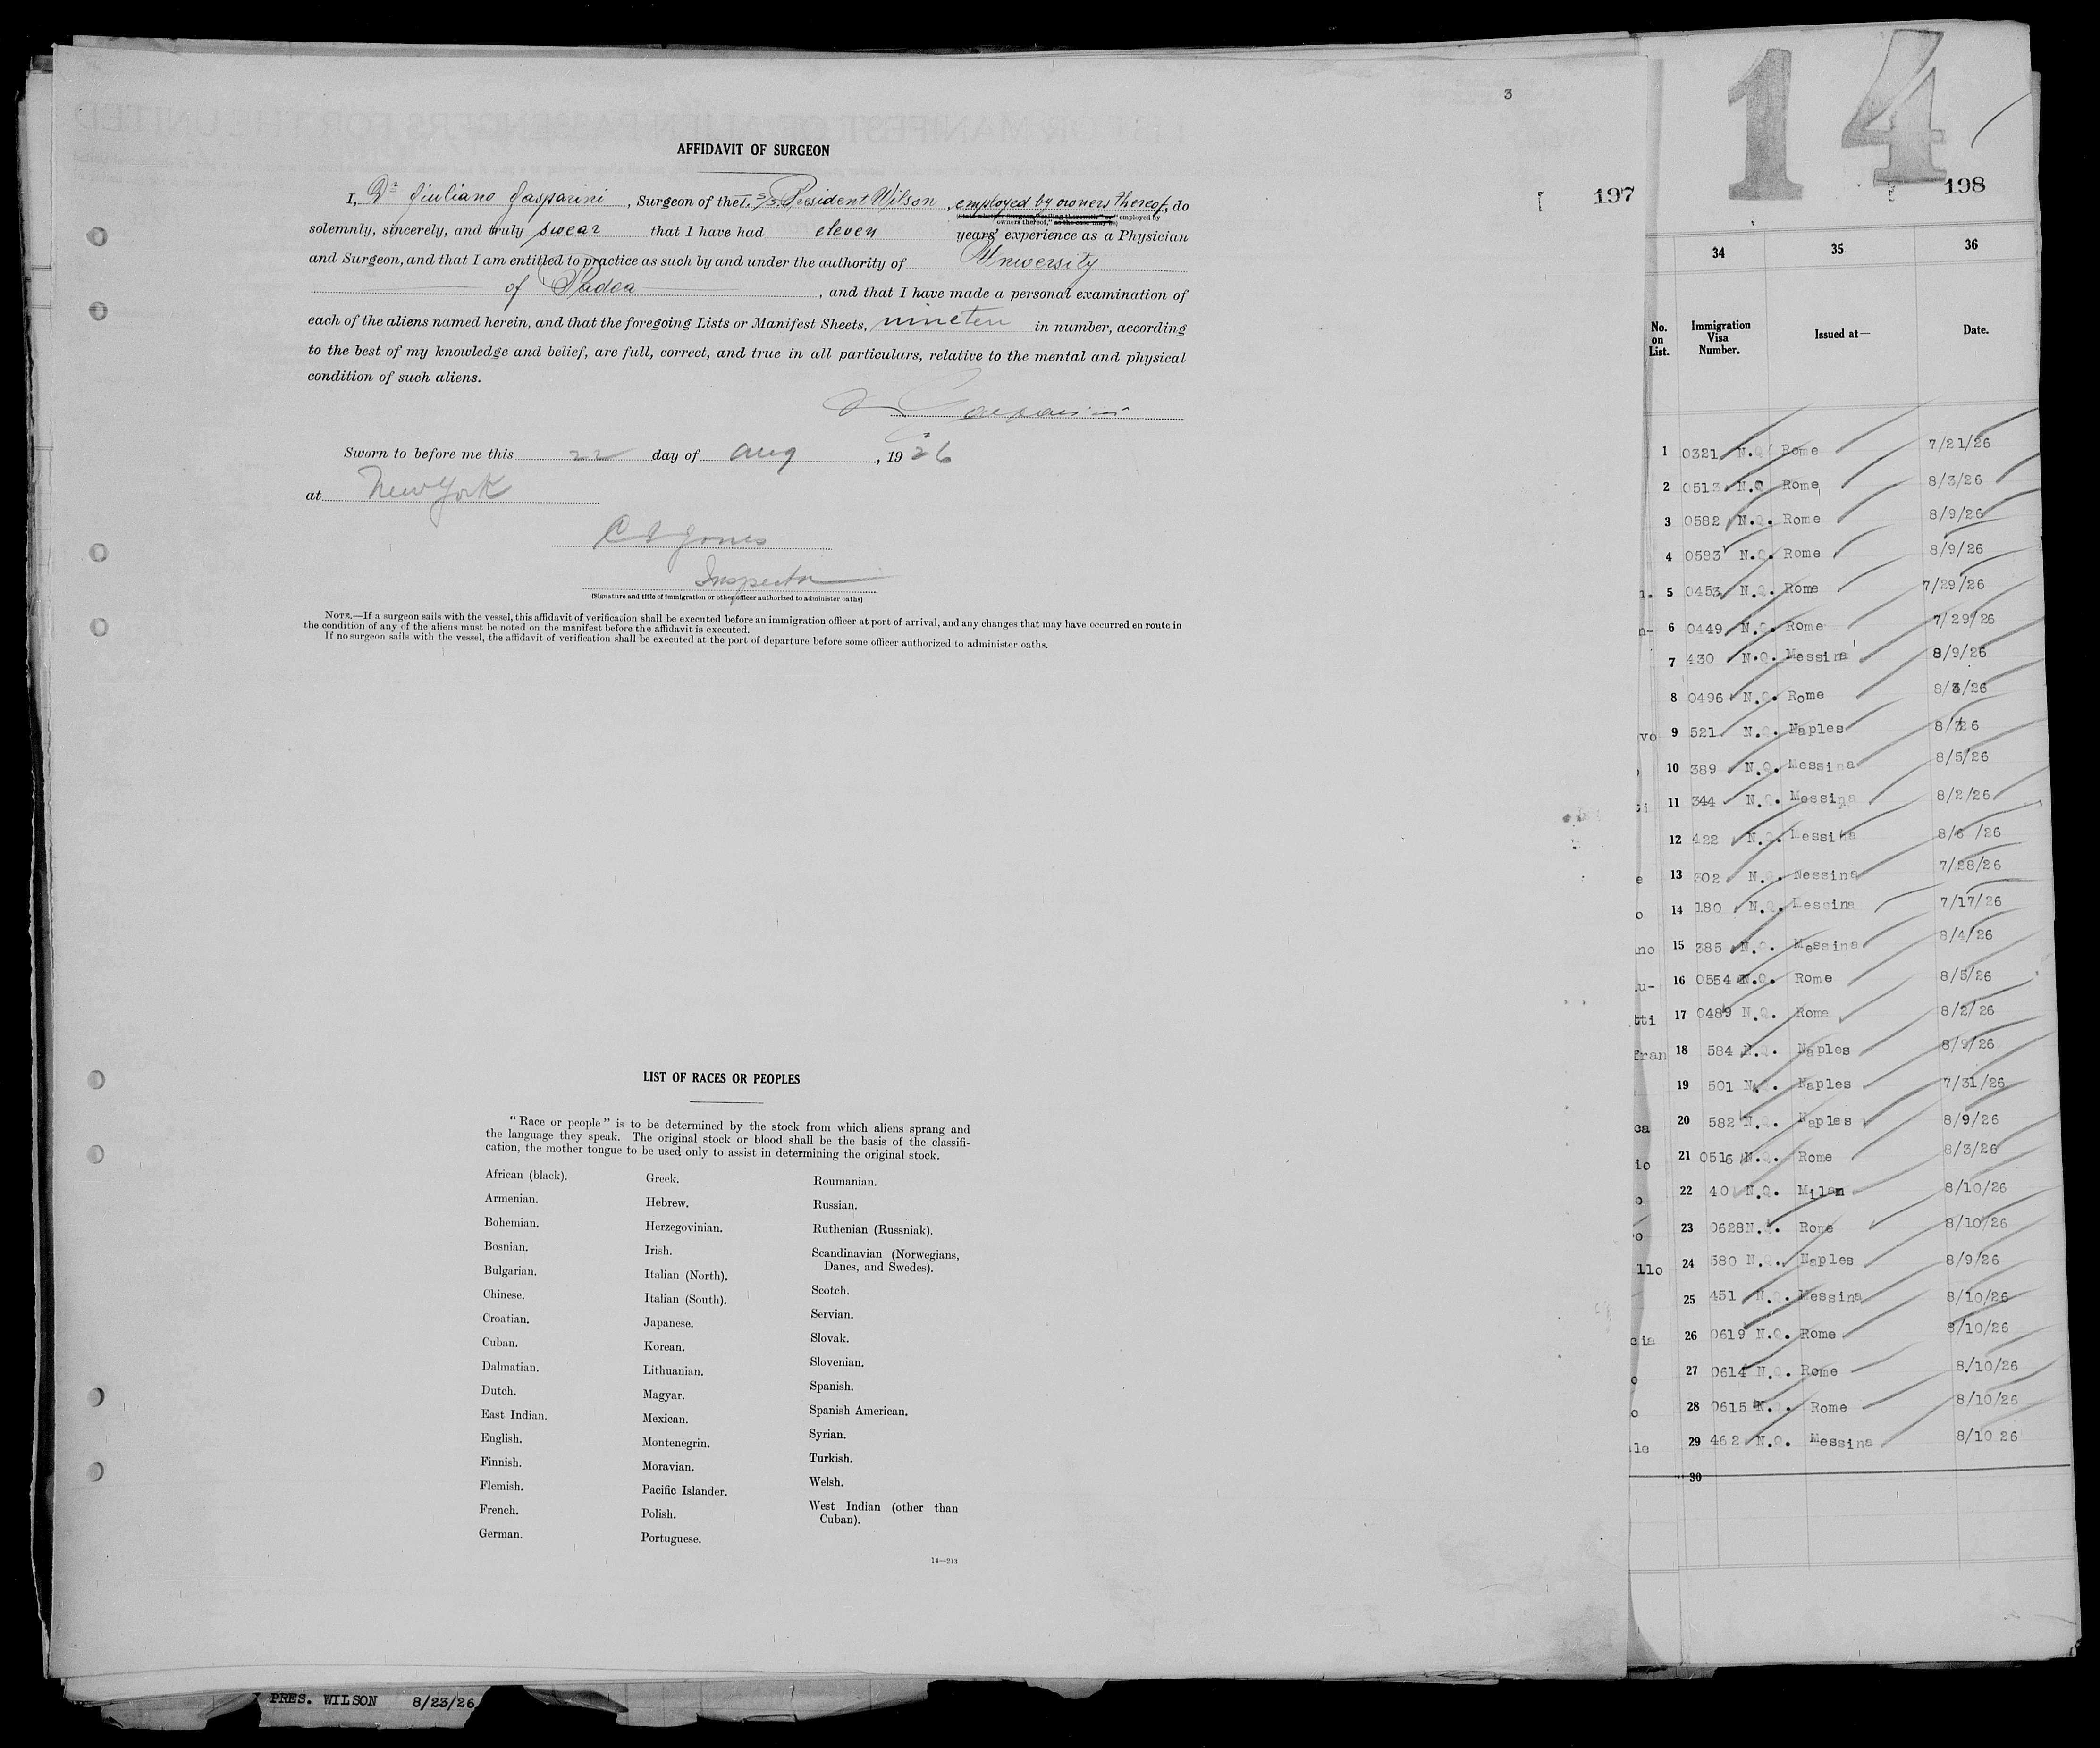 3
AFFIDAVIT OF SURGEON
I, Dr Giuliano Gasparini, Surgeon of the I. S/S. President Wilson, employed by owners thereof, do
owners thereof," as the case may be)
solemnly, sincerely, and truly swear that I have had eleven years' experience as a Physician
and Surgeon, and that I am entitled to practice as such by and under the authority of University
of Padoa, and that I have made a personal examination of
each of the aliens named herein, and that the foregoing Lists or Manifest Sheets, nineten in number, according
to the best of my knowledge and belief, are full, correct, and true in all particulars, relative to the mental and physical
condition of such aliens.
Gasparini
Sworn to before me this 22 day of Aug, 1926
at New York
Jones
Inspector
(Signature and title of immigration or other officer authorized to administer oaths)
NOTE.—If a surgeon sails with the vessel, this affidavit of verification shall be executed before an immigration officer at port of arrival, and any changes that may have occurred en route in
the condition of any of the aliens must be noted on the manifest before the affidavit is executed.
If no surgeon sails with the vessel, the affidavit of verification shall be executed at the port of departure before some officer authorized to administer oaths.
LIST OF RACES OR PEOPLES
"Race or people" is to be determined by the stock from which aliens sprang and
the language they speak. The original stock or blood shall be the basis of the classifi-
cation, the mother tongue to be used only to assist in determining the original stock.
African (black).
Armenian.
Bohemian.
Bosnian.
Bulgarian.
Chinese.
Croatian.
Cuban.
Dalmatian.
Dutch.
East Indian.
English.
Finnish.
Flemish.
French.
German.
Greek.
Hebrew.
Herzegovinian.
Irish.
Italian (North).
Italian (South).
Japanese.
Korean.
Lithuanian.
Magyar.
Mexican.
Montenegrin.
Moravian.
Pacific Islander.
Polish.
Portuguese.
Roumanian.
Russian.
Ruthenian (Russniak).
Scandinavian (Norwegians,
Danes, and Swedes).
Scotch.
Servian.
Slovak.
Slovenian.
Spanish.
Spanish American.
Syrian.
Turkish.
Welsh.
West Indian (other than
Cuban).
14—213
PRES. WILSON 8/23/26
197
14
198
34 35 36
No. on List. Immigration Visa Number. Issued at— Date.
1 0321 N.Q. Rome 7/21/26
2 0513 N.Q. Rome 8/3/26
3 0582 N.Q. Rome 8/9/26
4 0583 N.Q. Rome 8/9/26
5 0453 N.Q. Rome 7/29/26
6 0449 N.Q. Rome 7/29/26
7 430 N.Q. Messina 8/9/26
8 0496 N.Q. Rome 8/3/26
9 521 N.Q. Naples
10 389 N.Q. Messina 8/5/26
11 344 N.Q. Messina 8/2/26
12 422 N.Q. Messina 8/6 /26
13 302 N.Q. Messina 7/28/26
14 180 N.Q. Messina 7/17/26
15 385 N.Q. Messina 8/4/26
16 0554 N.Q. Rome 8/5/26
17 0489 N.Q. Rome 8/2/26
18 584 N.Q. Naples 8/9/26
19 501 N.Q. Naples 7/31/26
20 582 N.Q. Naples 8/9/26
21 0516 N.Q. Rome 8/3/26
22 40 N.Q. Milan 8/10/26
23 0628 N.Q. Rome 8/10/26
24 580 N.Q. Naples 8/9/26
25 451 N.Q. Messina 8/10/26
26 0619 N.Q. Rome 8/10/26
27 0614 N.Q. Rome 8/10/26
28 0615 N.Q. Rome 8/10/26
29 462 N.Q. Messina 8/10 26
30